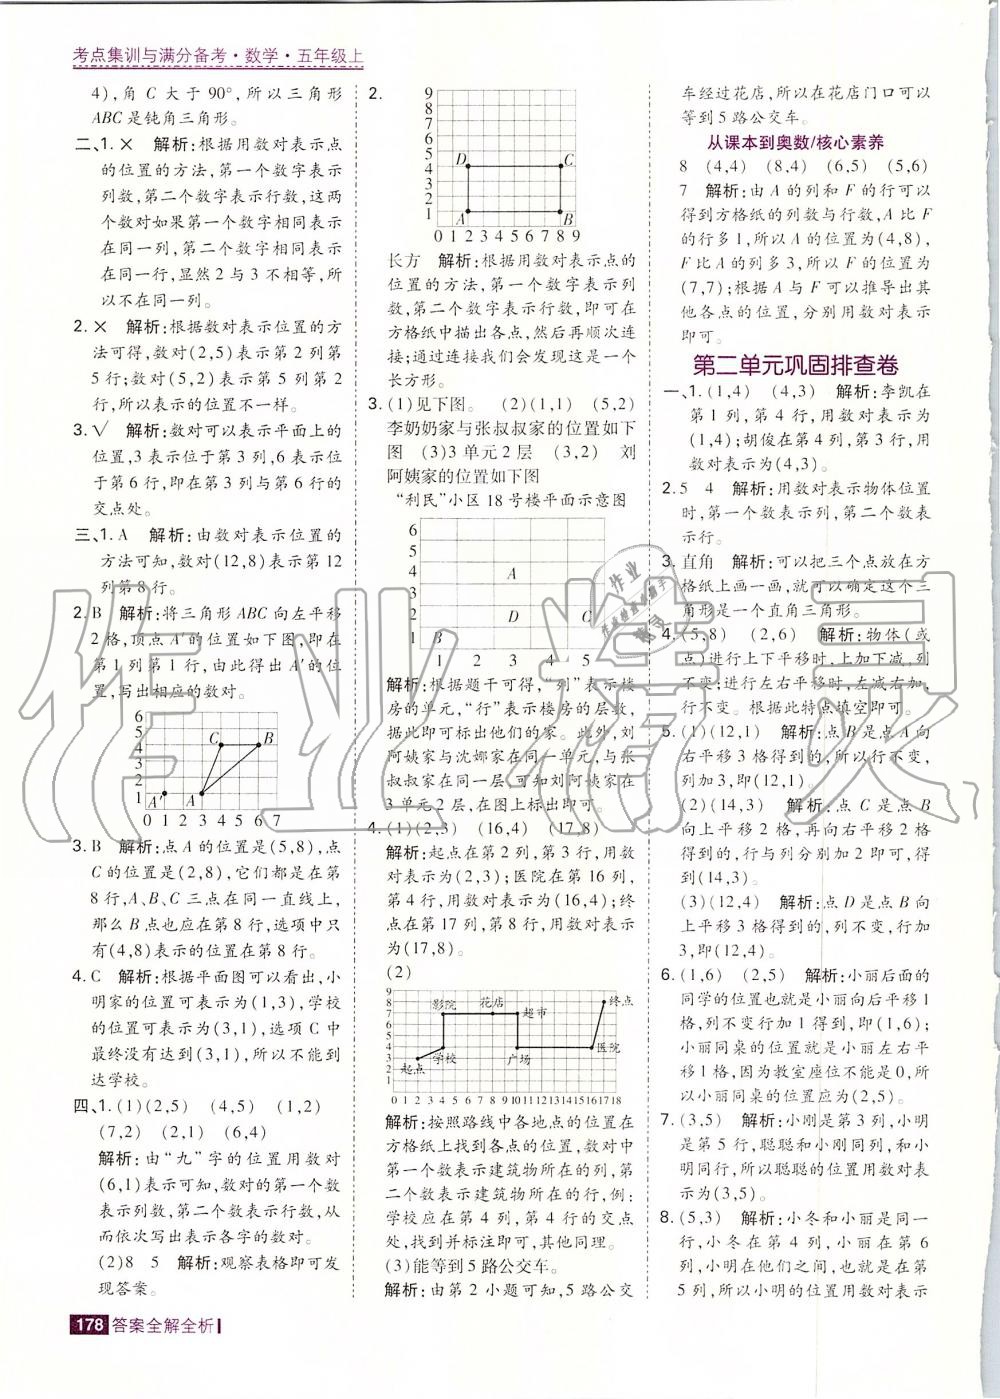 考点集训与满分备考·数学·五年级上
4),角 C 大于 90°,所以三角形
ABC是钝角三角形。
二、1. × 解析:根据用数对表示点
的位置的方法,第一个数字表示
列数,第二个数字表示行数,这两
个数对如果第一个数字相同表示
在同一列,第二个数字相同表示
在同一行,显然 2 与 3 不相等,所
以不在同一列。
2. × 解析:根据数对表示位置的方
法可得,数对(2,5)表示第 2 列第
5 行;数对(5,2)表示第 5 列第 2
行,所以表示的位置不一样。
3. √ 解析:数对可以表示平面上的
位置,3 表示位于第 3 列,6 表示位
于第 6 行,即在第 3 列与第 6 行的
交点处。
三、1. A 解析:由数对表示位置的
方法可知,数对(12,8)表示第 12
列第 8 行。
2. B 解析:将三角形 ABC 向左平移
2 格,顶点 A′的位置如下图,即在
第 1 列第 1 行,由此得出 A′的位
置,写出相应的数对。
6
5
4 C B
3
2
1 A′ A
0 1 2 3 4 5 6 7
3. B 解析:点 A 的位置是(5,8),点
C 的位置是(2,8),它们都是在第
8 行,A、B、C 三点在同一直线上,
那么 B 点也应在第 8 行,选项中只
有(4,8)表示的位置在第 8 行。
4. C 解析:根据平面图可以看出,小
明家的位置可表示为(1,3),学校
的位置可表示为(3,1),选项 C 中
最终没有达到(3,1),所以不能到
达学校。
四、1. (1)(2,5) (4,5) (1,2)
(7,2) (2,1) (6,4)
解析:由“九”字的位置用数对
(6,1)表示可知,数对的第一个数
表示列数,第二个数表示行数,从
而依次写出表示各字的数对。
(2)8 5 解析:观察表格即可发
现答案。
2.
9
8
7
6
5
4 D C
3
2
1 A B
0 1 2 3 4 5 6 7 8 9
长方 解析:根据用数对表示点的
位置的方法,第一个数字表示列
数,第二个数字表示行数,即可在
方格纸中描出各点,然后再顺次连
接;通过连接我们会发现这是一个
长方形。
3. (1)见下图。 (2)(1,1) (5,2)
李奶奶家与张叔叔家的位置如下
图 (3)3 单元 2 层 (3,2) 刘
阿姨家的位置如下图
“利民”小区 18 号楼平面示意图
6
5
4 A
3
2 D C
1 B
1 2 3 4 5
解析:根据题干可得,“列”表示楼
房的单元,“行”表示楼房的层数,
据此即可标出他们的家。此外,刘
阿姨家与沈娜家在同一单元,与张
叔叔家在同一层,可知刘阿姨家在
3 单元 2 层,在图上标出即可。
4. (1)(2,3) (16,4) (17,8)
解析:起点在第 2 列,第 3 行,用数
对表示为(2,3);医院在第 16 列,
第 4 行,用数对表示为(16,4);终
点在第 17 列,第 8 行,用数对表示
为(17,8)。
(2)
9
8 影院 花店 终点
7 超市
6
5
4 学校 广场 医院
3
2 起点
1
0 1 2 3 4 5 6 7 8 9 10 11 12 13 14 15 16 17 18
解析:按照路线中各地点的位置在
方格纸上找到各点的位置,数对中
第一个数表示建筑物所在的列,第
二个数表示建筑物所在的行,例:
学校应在第 4 列,第 4 行的交点
处,找到并标注即可,其他同理。
(3)能等到 5 路公交车。
解析:由第 2 小题可知,5 路公交
车经过花店,所以在花店门口可以
等到 5 路公交车。
从课本到奥数/核心素养
8 (4,4) (8,4) (6,5) (5,6)
7 解析:由 A 的列和 F 的行可以
得到方格纸的列数与行数,A 比 F
的行多 1,所以 A 的位置为(4,8),
F 比 A 的列多 3,所以 F 的位置为
(7,7);根据 A 与 F 可以推导出其
他各点的位置,分别用数对表示
即可。
第二单元巩固排查卷
一、1. (1,4) (4,3) 解析:李凯在
第 1 列,第 4 行,用数对表示为
(1,4);胡俊在第 4 列,第 3 行,用
数对表示为(4,3)。
2. 5 4 解析:用数对表示物体位置
时,第一个数表示列,第二个数表
示行。
3. 直角 解析:可以把三个点放在方
格纸上画一画,就可以确定这个三
角形是一个直角三角形。
4. (5,8) (2,6) 解析:物体(或
点)进行上下平移时,上加下减,列
不变;进行左右平移时,左减右加,
行不变。根据此特点填空即可。
5. (1)(12,1) 解析:点 B 是点 A 向
右平移 3 格得到的,所以行不变,
列加 3,即(12,1)。
(2)(14,3) 解析:点 C 是点 B
向上平移 2 格,再向右平移 2 格
得到的,行与列分别加 2 即可,得
到(14,3)。
(3)(12,4) 解析:点 D 是点 B 向
上平移 3 格得到的,列不变,行加
3,即(12,4)。
6. (1,6) (2,5) 解析:小丽后面的
同学的位置也就是小丽向后平移 1
格,列不变行加 1 得到,即(1,6);
小丽同桌的位置就是小丽左右平
移 1 格,因为教室座位不能是 0,所
以小丽同桌的位置应为(2,5)。
7. (3,5) 解析:小刚是第 3 列,小明
是第 5 行,聪聪和小刚同列,和小
明同行,所以聪聪的位置用数对表
示为(3,5)。
8. (5,3) 解析:小冬和小丽是同一
行,小冬在第 4 列,小丽在第 6
列,小明在他们之间,也就是在第
5 列,所以小明的位置用数对表示
178 答案全解全析
作业精灵